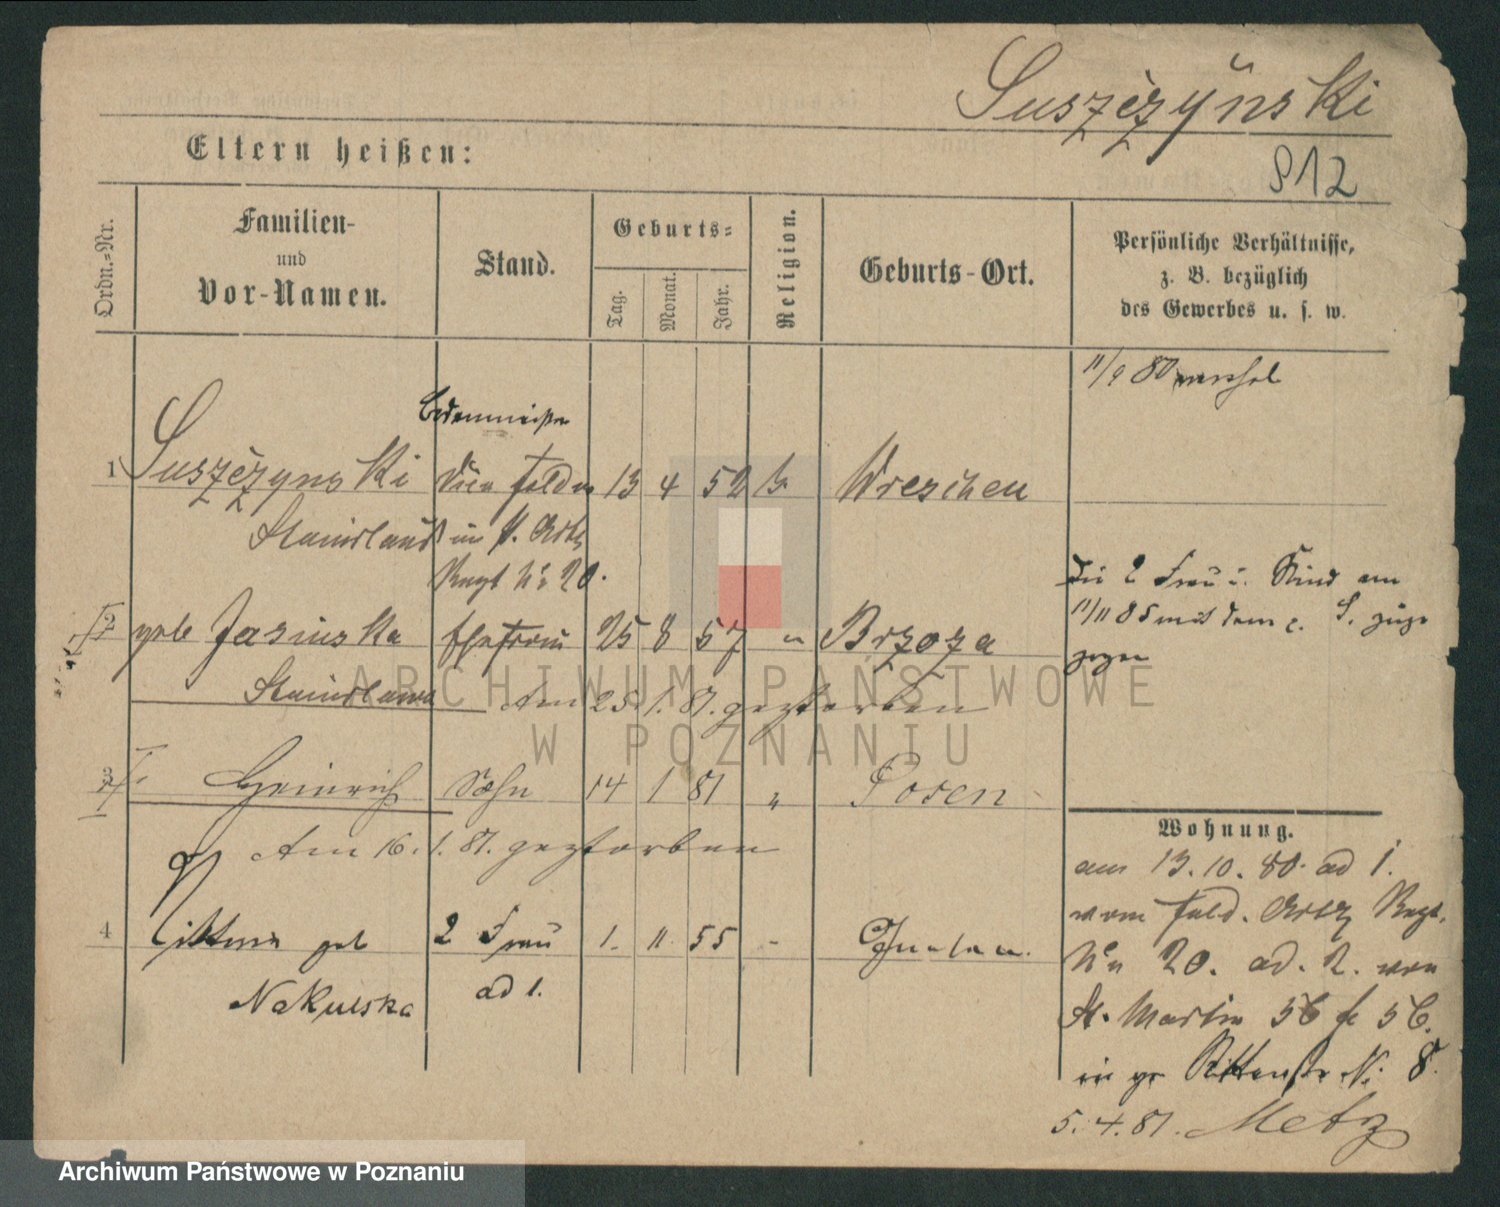 Suszczyński
912
Eltern heißen:
Ordn.-Nr.
Familien-
und
Vor-Namen.
Stand.
Geburts-
Tag.
Monat.
Jahr.
Religion.
Geburts-Ort.
Persönliche Verhältnisse,
z. B. bezüglich
des Gewerbes u. s. w.
11/9 80
1 Suszczynski 13 4 52 Wreschen
Stanislaus im
Regt No 20.
2 geb Jasinska Ehefrau 25 8 57 " Brzoza
Stanislawa Am 25. 1. 81. gestorben
Die 2 Frau u. Kind am
11/11 85 mit dem
3 Heinrich Sohn 14 1 81 " Posen
Am 16. 1. 81. gestorben
4 geb 2 Frau 1. 11 55 -
Nakulska ad 1.
Wohnung.
am 13. 10. 80. ad 1.
vom Feld. Regt.
No 20. ad. 2. von
St. Martin 56
in gr Ritterstr No 8.
5. 4. 81. Metz
ARCHIWUM PAŃSTWOWE
W POZNANIU
Archiwum Państwowe w Poznaniu